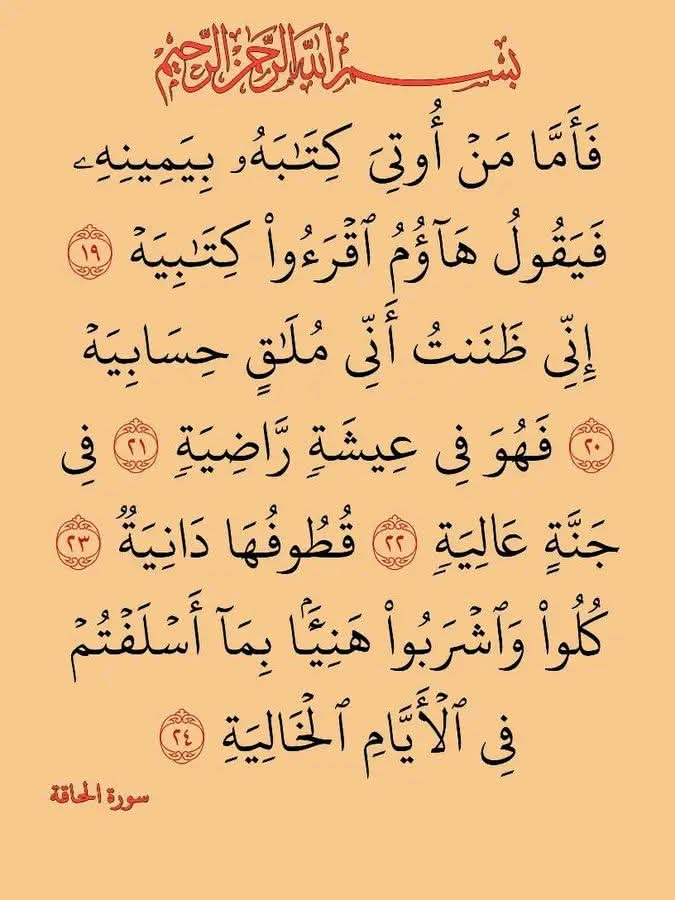 بِسْمِ اللَّهِ الرَّحْمَٰنِ الرَّحِيمِ
فَأَمَّا مَنْ أُوتِىَ كِتَٰبَهُۥ بِيَمِينِهِۦ
فَيَقُولُ هَآؤُمُ ٱقْرَءُوا۟ كِتَٰبِيَهْ ١٩
إِنِّى ظَنَنتُ أَنِّى مُلَٰقٍ حِسَابِيَهْ
٢٠ فَهُوَ فِى عِيشَةٍ رَّاضِيَةٍ ٢١ فِى
جَنَّةٍ عَالِيَةٍ ٢٢ قُطُوفُهَا دَانِيَةٌ ٢٣
كُلُوا۟ وَٱشْرَبُوا۟ هَنِيٓـًٔۢا بِمَآ أَسْلَفْتُمْ
فِى ٱلْأَيَّامِ ٱلْخَالِيَةِ ٢٤
سورة الحاقة